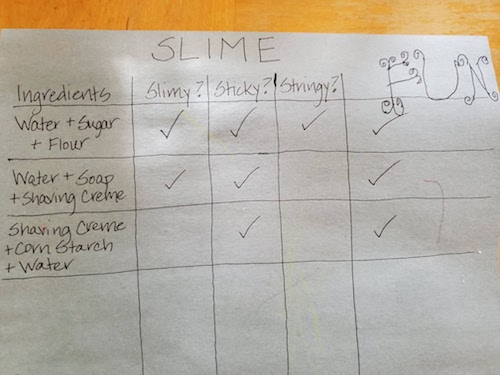 SLIME
Ingredients Slimy? Sticky? Stringy? FUN
Water + Sugar ✓ ✓ ✓ ✓
+ Flour
Water + Soap ✓ ✓ ✓
+ Shaving Creme
Shaving Creme ✓ ✓
+ Corn Starch
+ Water